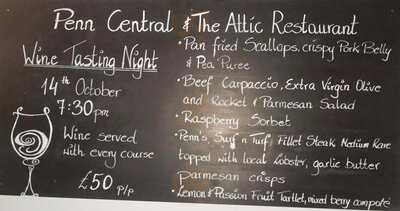 Penn Central & The Attic Restaurant
Wine Tasting Night
14th October
7:30pm
Wine served
with every course
£50 p/p
• Pan fried Scallops, crispy Pork Belly
& Pea Puree
• Beef Carpaccio, Extra Virgin Olive
and Rocket & Parmesan Salad
• Raspberry Sorbet
• Penn's Surf n Turf, Fillet Steak Medium Rare
topped with local Lobster, garlic butter
parmesan crisps
• Lemon & Passion Fruit Tartlet, mixed berry compote